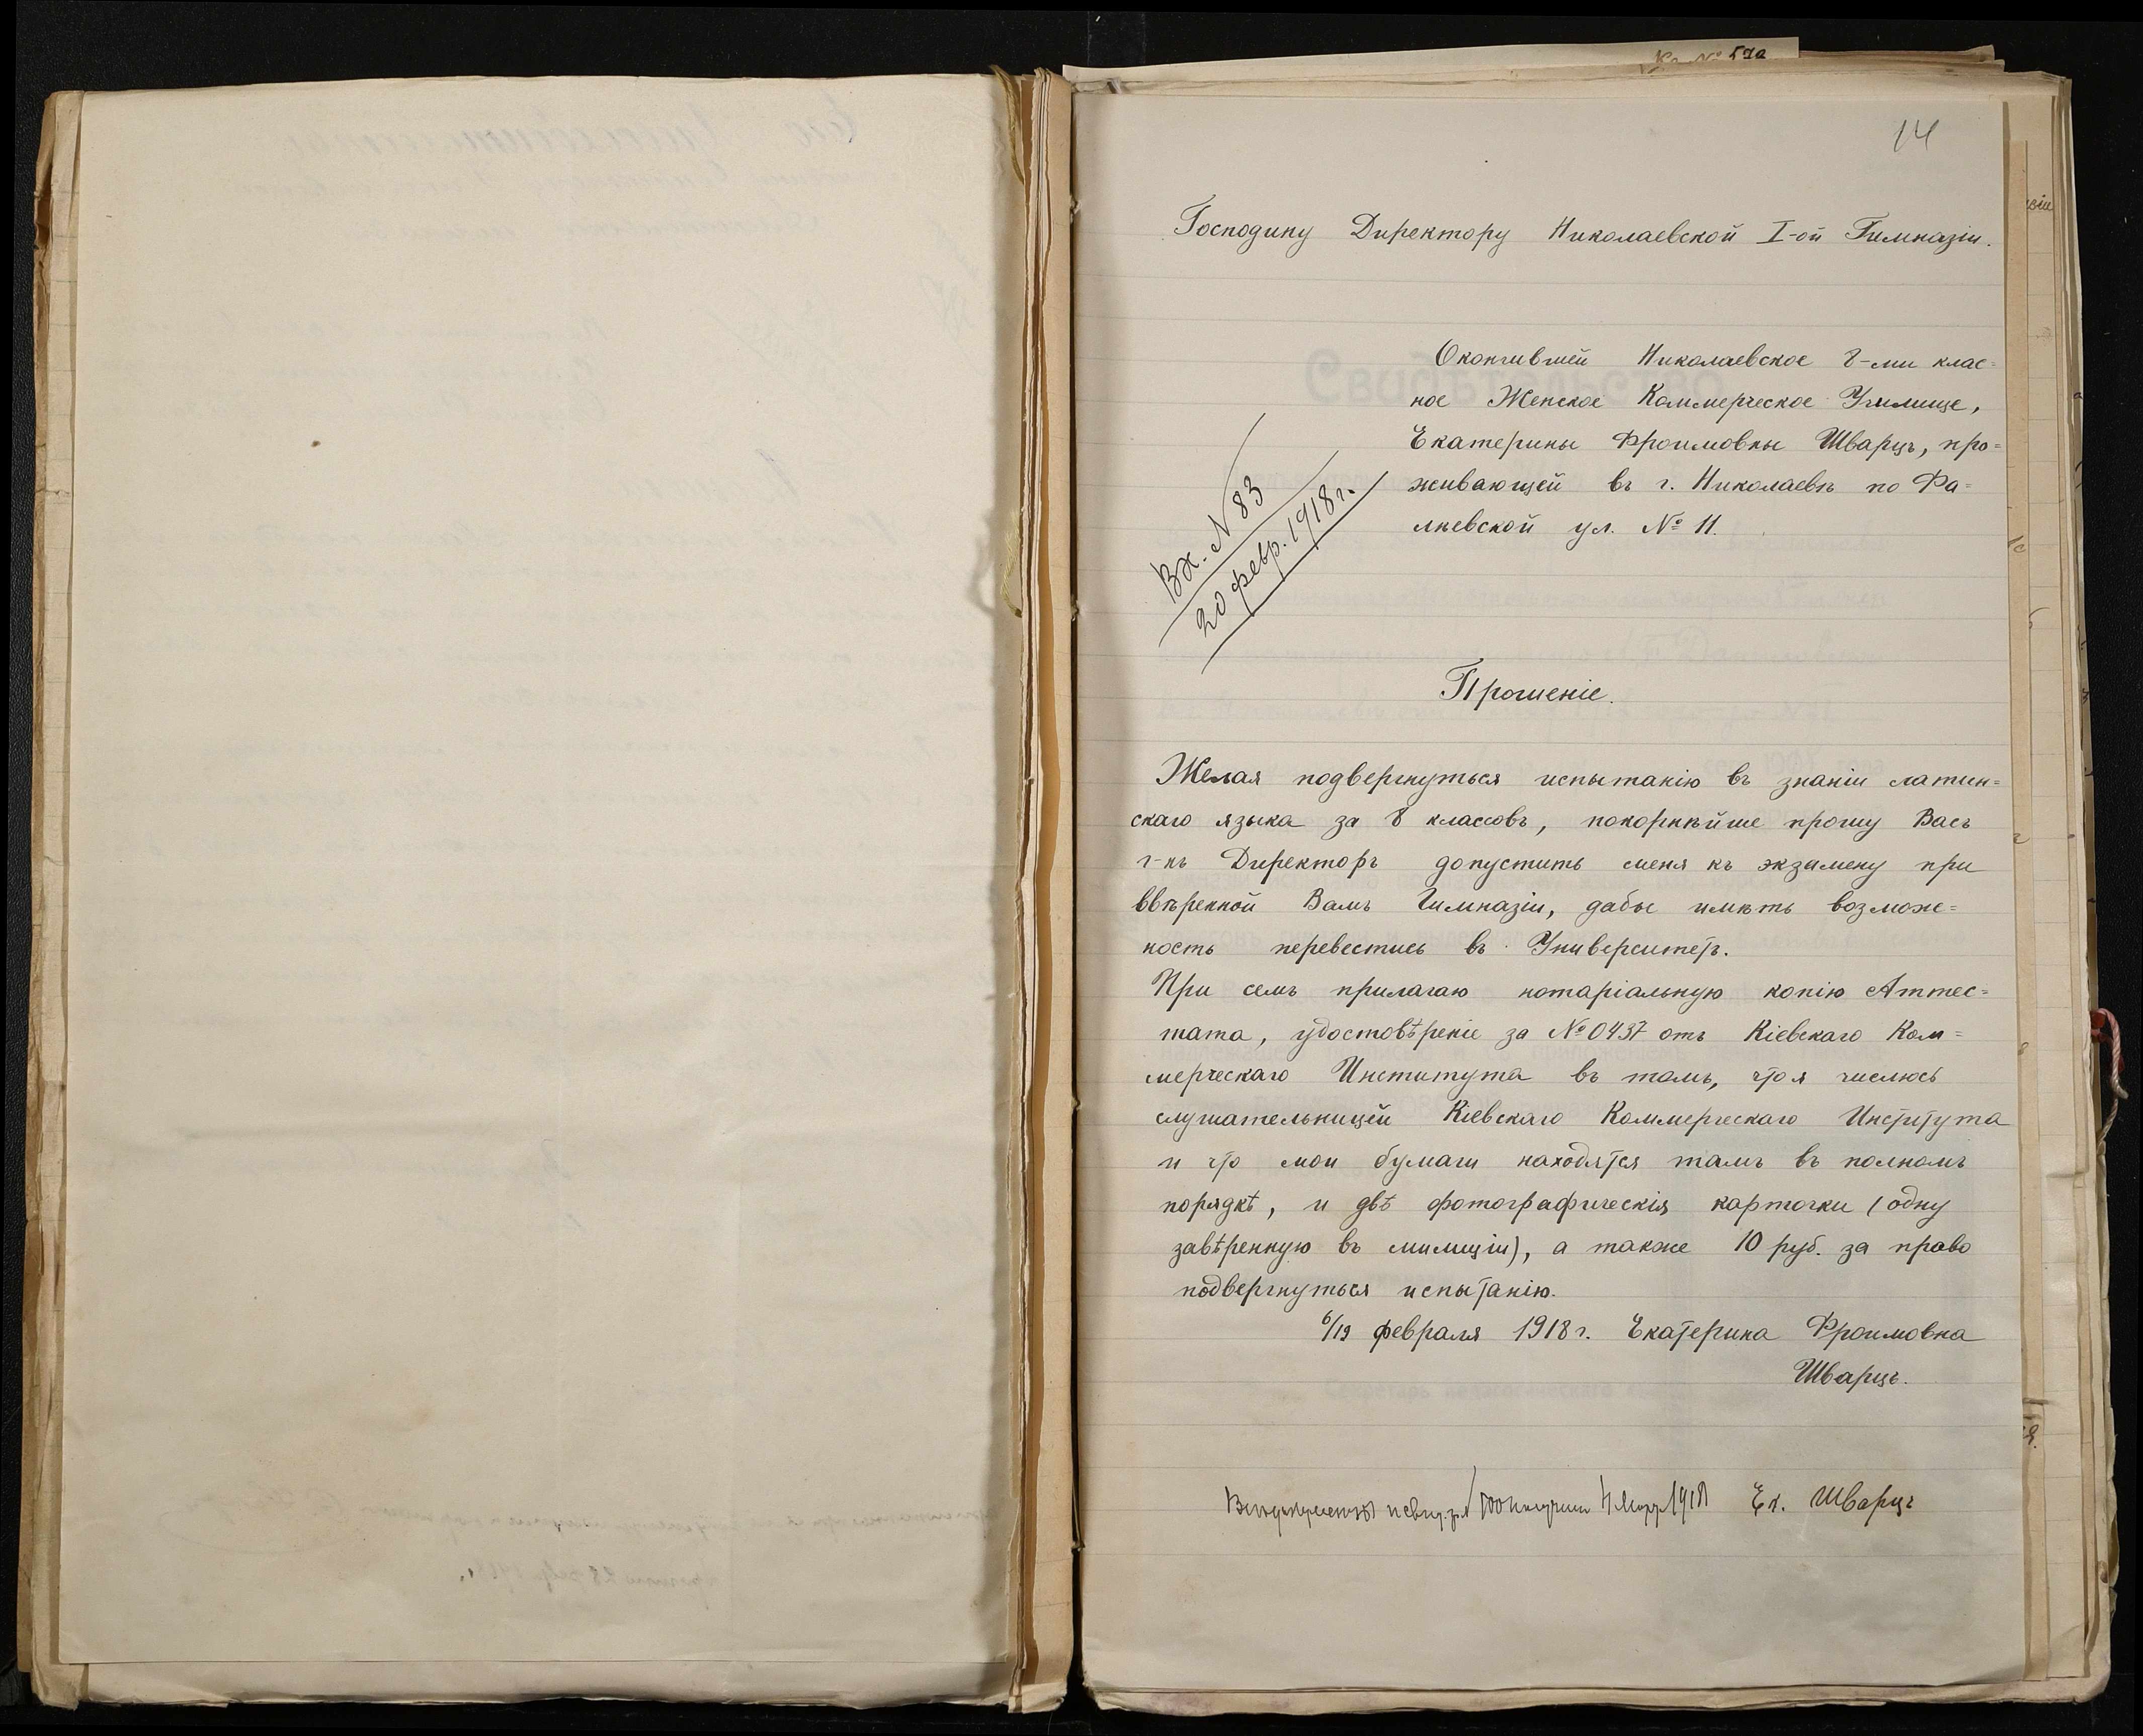 14
Господину Директору Николаевской I-ой Гимназіи.
Окончившей Николаевское 8-ми клас=
ное Женское Коммерческое Училище,
Екатерины Фроимовны Шварцъ, про=
живающей въ г. Николаевѣ по Фа=
лѣевской ул. № 11.
Вх. N 83
20 февр. 1918 г.
Прошеніе.
Желая подвергнуться испытанію въ знаніи латин=
скаго языка за 8 классовъ, покорнѣйше прошу Васъ
г-нъ Директоръ допустить меня къ экзамену при
ввѣренной Вамъ Гимназіи, дабы имѣть возмож=
ность перевестись въ Университетъ.
При семъ прилагаю нотаріальную копію Аттес=
тата, удостовѣреніе за № 0437 отъ Кіевскаго Ком=
мерческаго Института въ томъ, что я числюсь
слушательницей Кіевскаго Коммерческаго Института
и что мои бумаги находятся тамъ въ полномъ
порядкѣ, и двѣ фотографическія карточки (одну
завѣренную въ милиціи), а также 10 руб. за право
подвергнуться испытанію.
6/19 февраля 1918 г. Екатерина Фроимовна
Шварцъ.
1918 Ек. Шварцъ